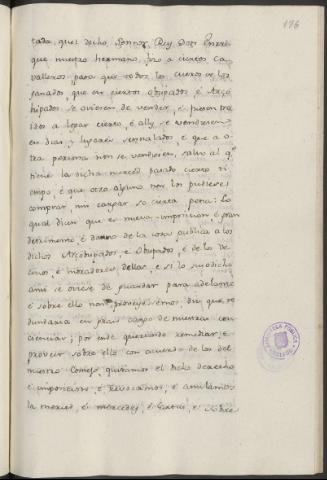 176
tada que l dicho Sennor Rey Don Enrri
que nuestro hermano fizo a ciertos Ca
valleros para que todos los cueros de los
ganados, que en ciertos Obispados, é Arzo
bispados se ovieren de vender, é fuesen tra
idos a logar cierto, é alli se vendiesen
en dias, y lugares sennalados, é que a o
tra persona non se vendiesen, salvo al q.e
tiene la dicha merced fasta cierto ti
empo, é que otro alguno non los pudiese
comprar, nin cargar so cierta pena: Lo
qual dicen que es nueva imposicion é gran
detrimento, é danno de la cosa publica a los
dichos Arzobispados, e Obispados, é de los Ve
cinos, é moradores dellos, é si lo susodicho
ansi se oviese de guardar para adelante
é sobre ello non proveyesemos diz que re
dundaria en grand cargo de nuestra con
ciencia; por ende queriendo remediar, é
proveer sobre ello con acuerdo de los del
nuestro Consejo, quitamos el dicho derecho
é imposicion, é Revocamos, é anulamos
la merced, é mercedes, é Cartas, é sobre
BIBLIOTECA PUBLICA
TOLEDO